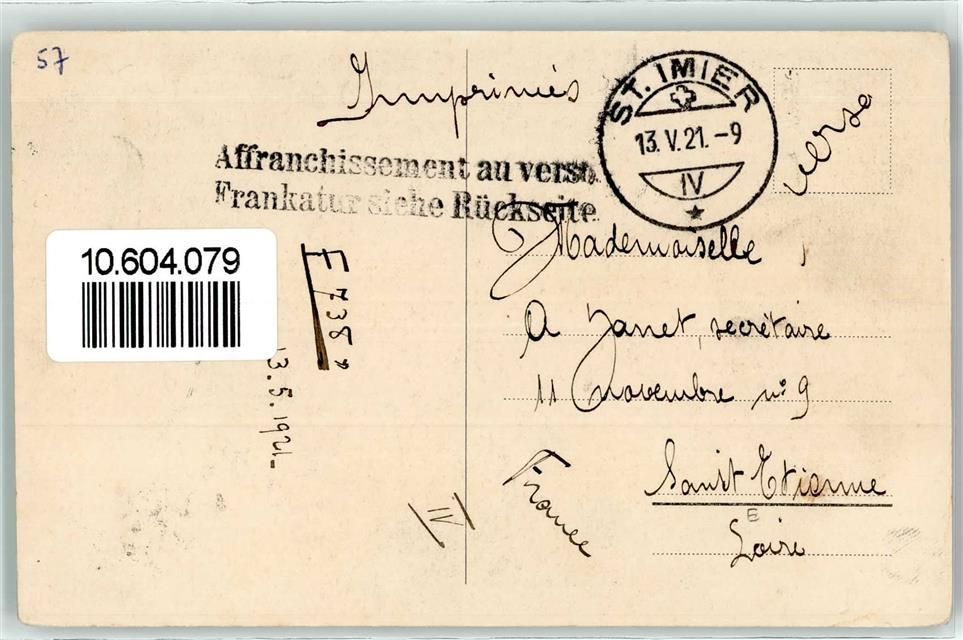 57
Imprimés
ST. IMIER
13.V.21.-9
IV
verso
Affranchissement au verso
Frankatur siehe Rückseite
10.604.079
F 738"
13.5.1921
IV
Mademoiselle
A Janet, secrétaire
11 novembre nº 9
Saint Etienne
E
Loire
France